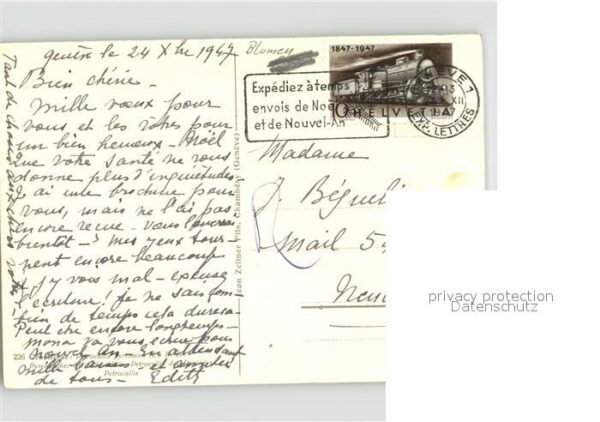 genève le 24 Xbre 1947
Blumen
Bien chérie -
Mille vœux pour
vous et les vôtres pour
un bien heureux Noël
Que votre santé ne vous
donne plus d'inquiétudes
J'ai une brochure pour
vous, mais ne l'ai pas
encore reçue - Vous l'aurez
bientôt - ! Mes yeux
encore beaucoup
j'y vois mal - excuse
l'écriture ! je ne sais com-
bien de temps cela durera
Peut être encore longtemps -
Mona va vous écrire pour
nouvel An. En attendant
mille baisers - et amitiés
de tous - Edith
Tant de choses aux chers vôtres
226
Petrocallis
Jean Zeltner Fils, Chambésy (Genève)
Expédiez à temps
envois de Noël
et de Nouvel-An
1847-1947
HELVETIA
EXP. LETTRES
Madame
J. Béguelin
Mail 5
privacy protection
Datenschutz